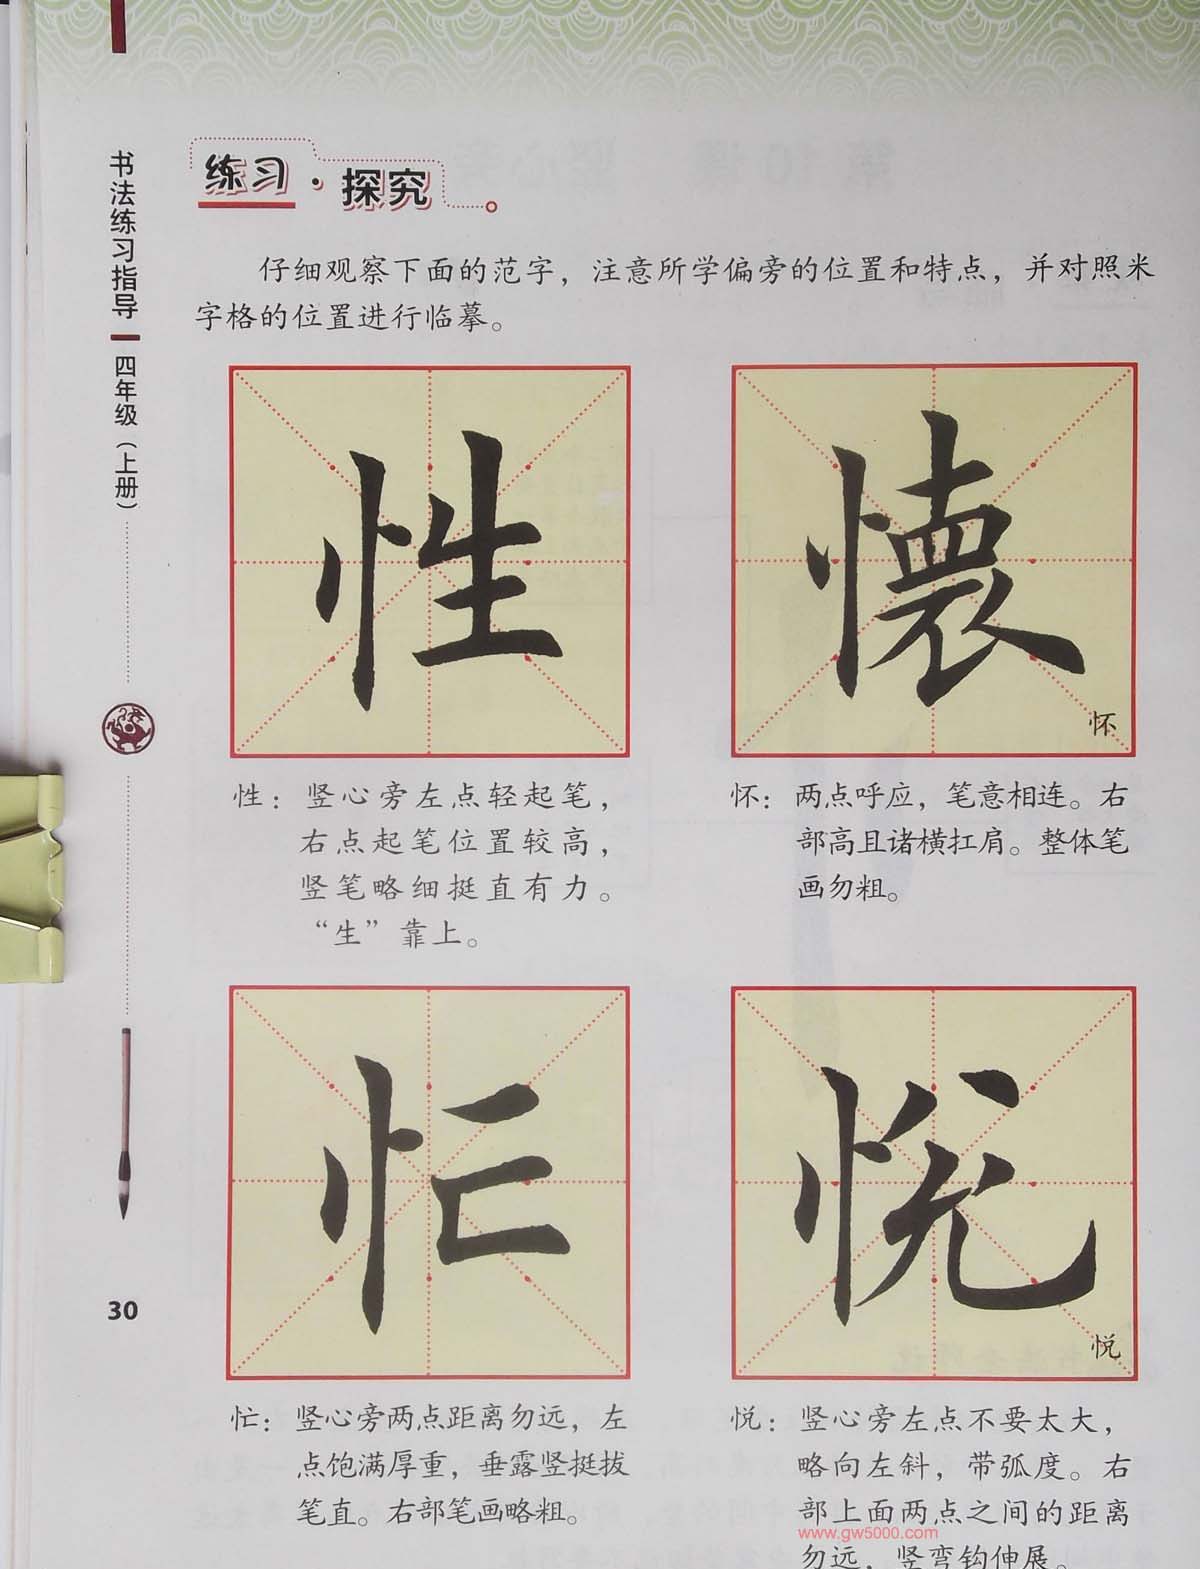 书法练习指导
四年级（上册）
练习·探究
仔细观察下面的范字，注意所学偏旁的位置和特点，并对照米
字格的位置进行临摹。
性
懷
怀
性：竖心旁左点轻起笔，
右点起笔位置较高，
竖笔略细挺直有力。
“生”靠上。
怀：两点呼应，笔意相连。右
部高且诸横扛肩。整体笔
画勿粗。
忙
悦
悦
忙：竖心旁两点距离勿远，左
点饱满厚重，垂露竖挺拔
笔直。右部笔画略粗。
悦：竖心旁左点不要太大，
略向左斜，带弧度。右
部上面两点之间的距离
勿远，竖弯钩伸展。
www.gw5000.com
30